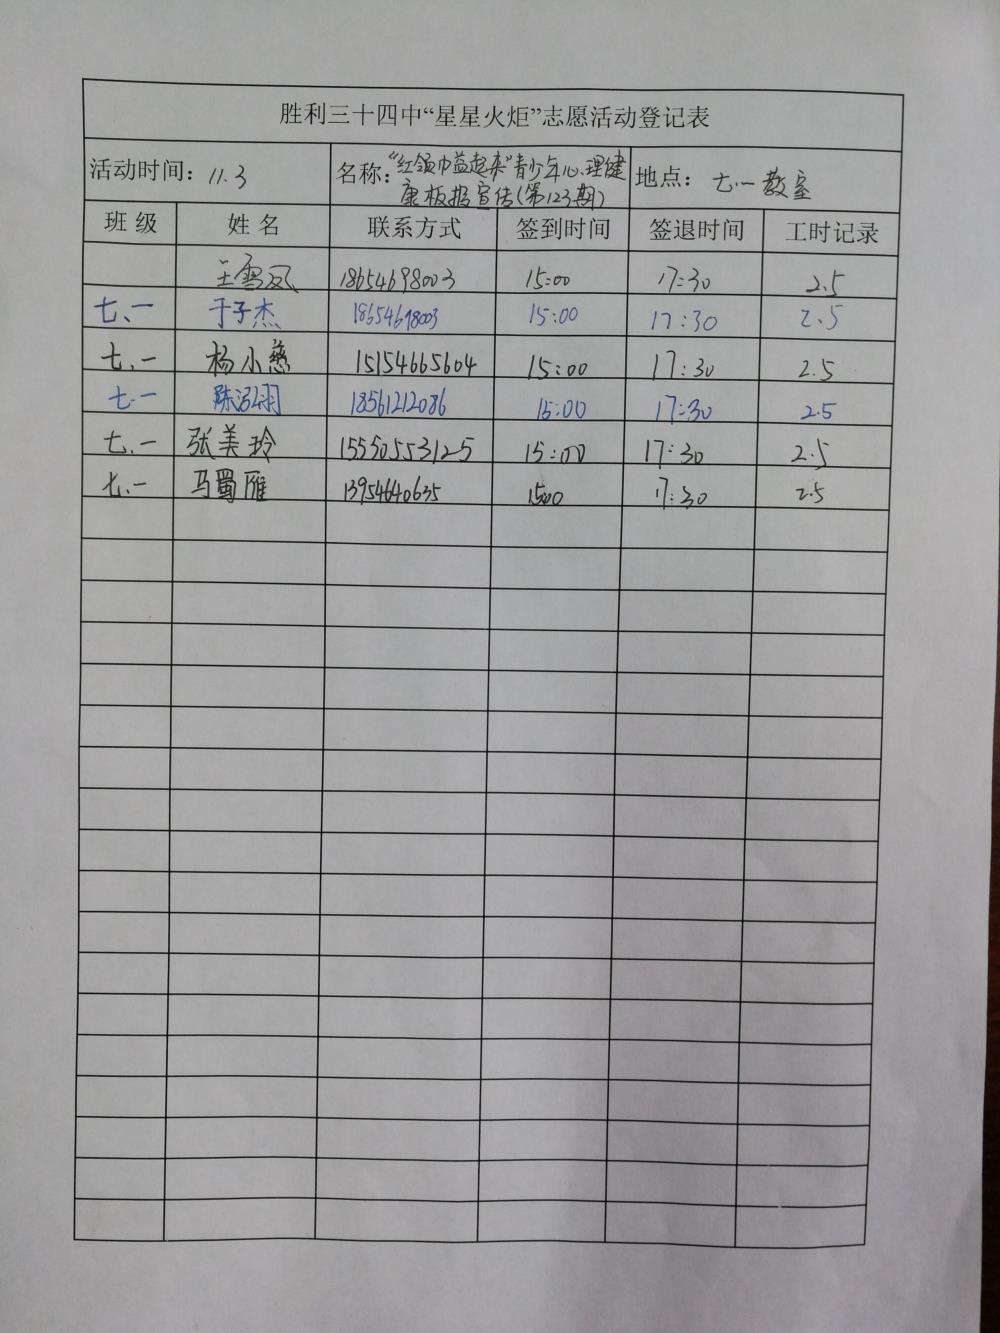 胜利三十四中“星星火炬”志愿活动登记表
活动时间：11.3 名称：“红领巾益起来”青少年心理健 地点：七.一教室
康板报宣传(第123期)
班级 姓名 联系方式 签到时间 签退时间 工时记录
王雪凤 18654698003 15:00 17:30 2.5
七、一 于子杰 18654698003 15:00 17:30 2.5
七、一 杨小慈 15154665604 15:00 17:30 2.5
七.一 陈泓羽 18561212086 15:00 17:30 2.5
七、一 张美玲 15550553125 15:00 17:30 2.5
七、一 马蜀雁 13954640635 1500 17:30 2.5